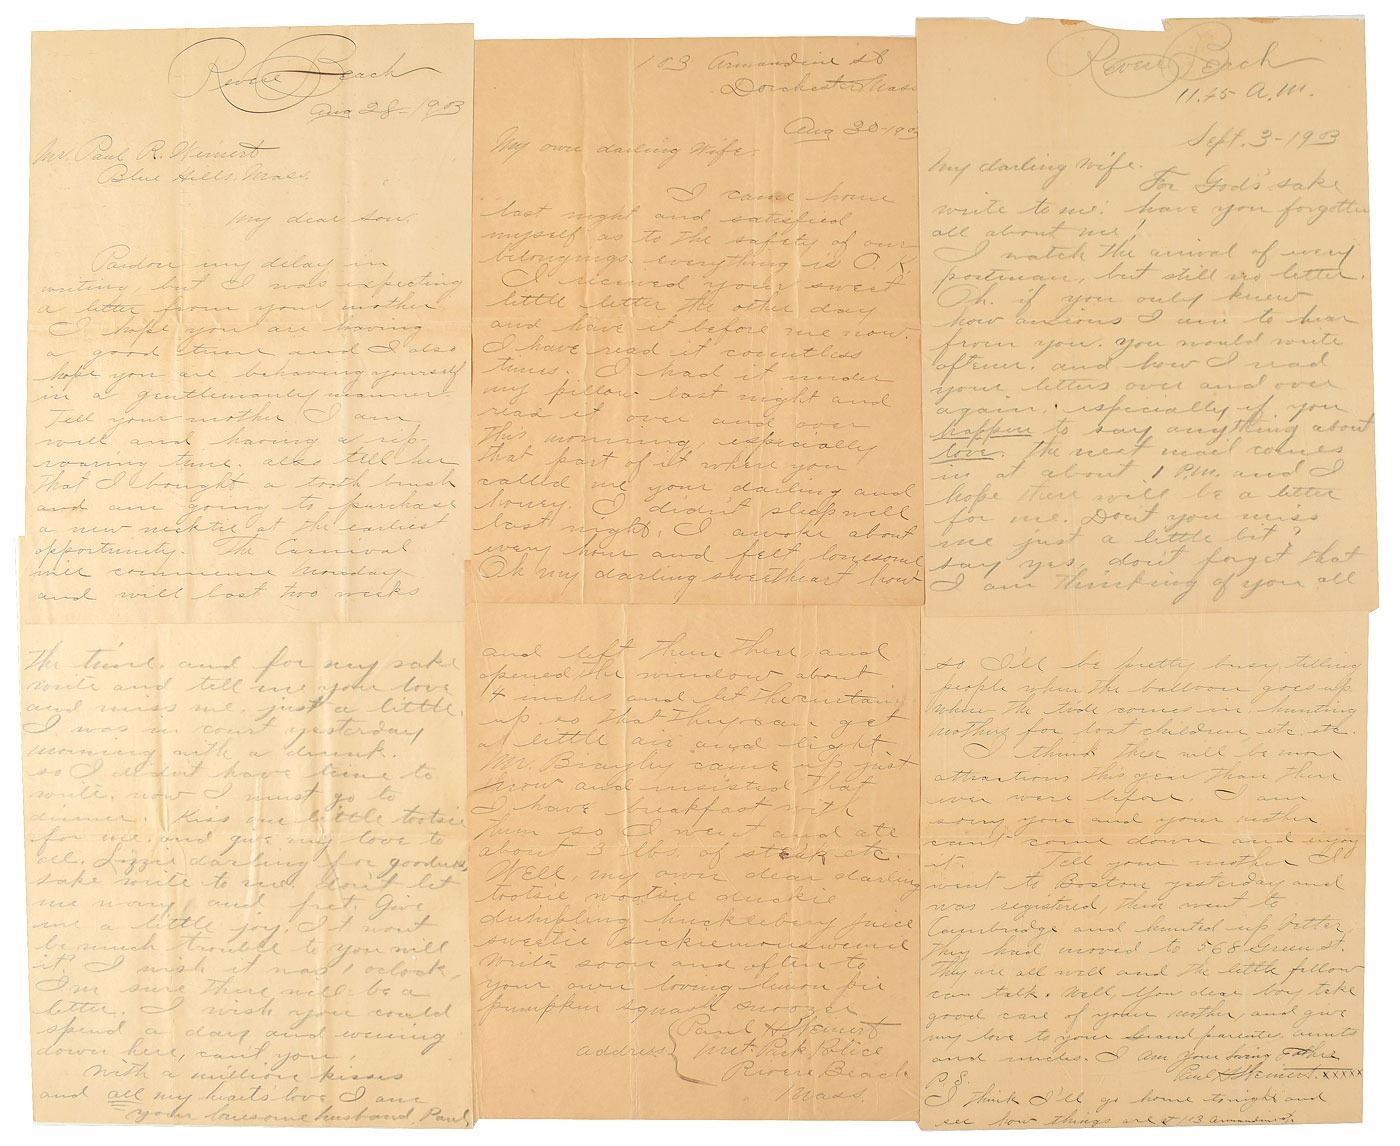 Revere Beach
Aug 28-1903
Mr. Paul R. Weinert
Blue Hills, Mass.
My dear son.
Pardon my delay in
writing, but I was expecting
a letter from your mother.
I hope you are having
a good time and I also
hope you are behaving yourself
in a gentlemanly manner.
Tell your mother I am
well and having a rip-
roaring time. also tell her
that I bought a tooth brush
and am going to purchase
a new necktie at the earliest
opportunity. The Carnival
will commence Monday
and will last two weeks
103 Armandine st
Dorchester Mass
Aug 30-1903
My own darling Wife.
I came home
last night and satisfied
myself as to the safety of our
belongings. everything is O.K.
I received your sweet
little letter the other day
and have it before me now.
I have read it countless
times. I had it under
my pillow last night and
read it over and over
this morning, especially
that part of it where you
called me your darling and
honey. I didn't sleep well
last night, I awoke about
every hour and felt lonesome
Oh my darling sweetheart how
Revere Beach
11.45 A.M.
Sept. 3-1903
My darling wife.
For God's sake
write to me! have you forgotten
all about me!
I watch the arrival of every
postman, but still no letter.
Oh. if you only knew
how anxious I am to hear
from you. you would write
oftener. and how I read
your letters over and over
again, especially if you
happen to say anything about
love. The next mail comes
in at about 1 P.M. and I
hope there will be a letter
for me. Don't you miss
me just a little bit?
say yes, don't forget that
I am thinking of you all
the time. and for my sake
write and tell me you love
and miss me. just a little.
I was in court yesterday
morning with a drunk.
so I didn't have time to
write. now I must go to
dinner. Kiss our little tootsie
for me. and give my love to
all. Lizzie darling for goodness
sake write to me. don't let
me worry and fret. Give
me a little joy. It wont
be much trouble to you will
it? I wish it was 1 oclock,
I'm sure there will be a
letter. I wish you could
spend a day and evening
down here, can't you.
With a million kisses
and all my hearts love I am
your lonesome husband, Paul,
and left them there, and
opened the window about
4 inches and let the curtains
up. so that they can get
a little air and light.
Mr. Bragley came up just
now and insisted that
I have breakfast with
them so I went and ate
about 3 lbs. of steak etc.
Well, my own dear darling
tootsie wootsie duckie
dumbling huckleberry juice
sweetie
write soon and often to
your own loving lemon pie
pumpkin squash snoozer
Paul H Weinert
address Met. Park Police
Revere Beach
Mass.
so I'll be pretty busy, telling
people when the balloon goes up
when the tide comes in, hunting
mothers for lost children etc. etc.
I think there will be more
attractions this year than there
ever were before. I am
sorry you and your mother
can't come down and enjoy
it. Tell your mother I
went to Boston yesterday and
was registered, then went to
Cambridge and hunted up
they had moved to 568 Green st.
They are all well and the little fellow
can talk. Well, you dear boy take
good care of your mother, and give
my love to your Grand parents. aunts
and uncles. I am your loving Father
Paul H Weinert. xxxxx
P.S.
I think I'll go home tonight and
see how things are at 103 Armandine st.